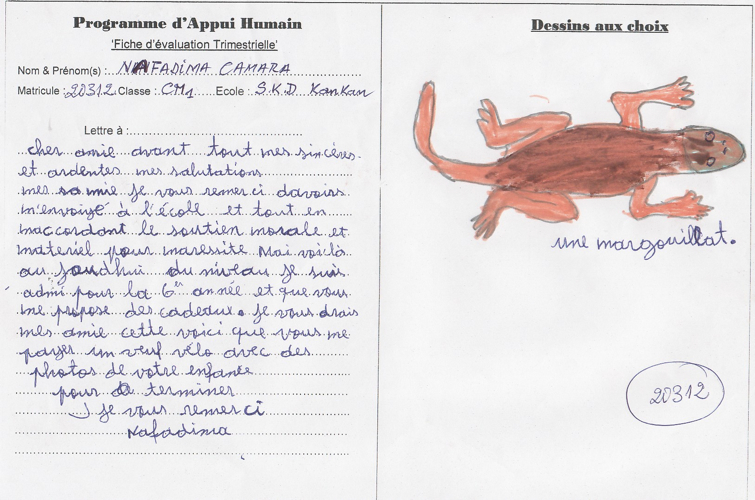 Programme d'Appui Humain
'Fiche d'évaluation Trimestrielle'
Nom & Prénom(s) : NAFADIMA CAMARA
Matricule : 20312 Classe : CM1 Ecole : S.K.D KanKan
Lettre à :
cher amie avant tout mes sincères
et ardentes mes salutations
mes so mie je vous remer ci davoirs
m'envoiyé à l'écoll et tout en
maccordant le soutien morale et
materiel pour maressité Mai voilà
au joudhui du niveau je suis
admi pour la 6em année et que vous
me propose des cadeaux. je vous drais
mes amie cette voici que vous me
payer un veuf vélo avec des
photos de votre enfance
pour de terminer
je vous remer ci
Nafadima
Dessins aux choix
une margouillat.
20312